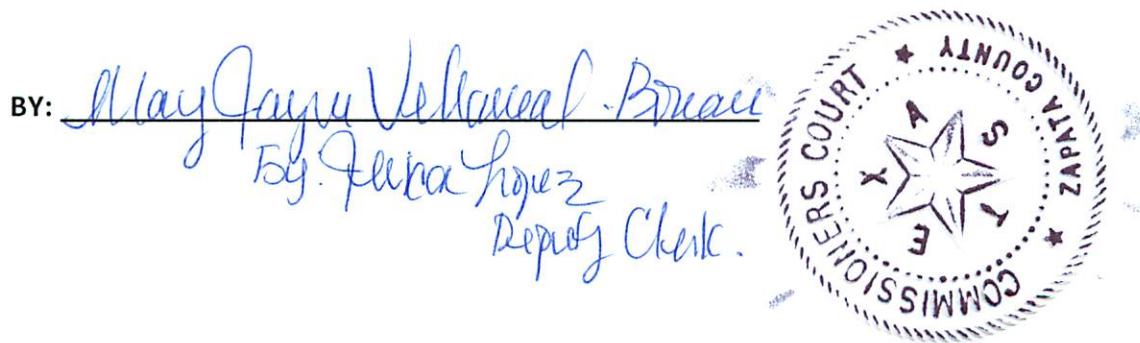 BY: Mary Jayne Villarreal-Bonoan
By: Lopez
Deputy Clerk.
COMMISSIONERS COURT ★ ZAPATA COUNTY ★
TEXAS